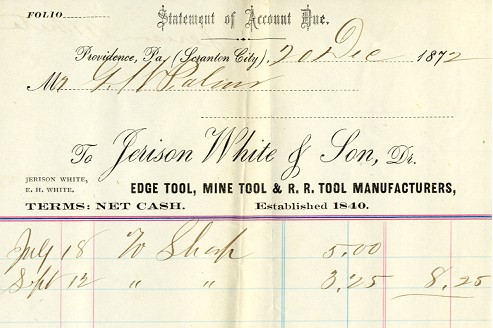 FOLIO
Statement of Account Due.
Providence, Pa. (Scranton City), 20 Dec 1872
Mr
To Jerison White & Son, Dr.
JERISON WHITE,
E. H. WHITE.
EDGE TOOL, MINE TOOL & R. R. TOOL MANUFACTURERS,
TERMS: NET CASH. Established 1840.
July 18 To Sharp 5.00
Sept 12 " " 3.25 8.25